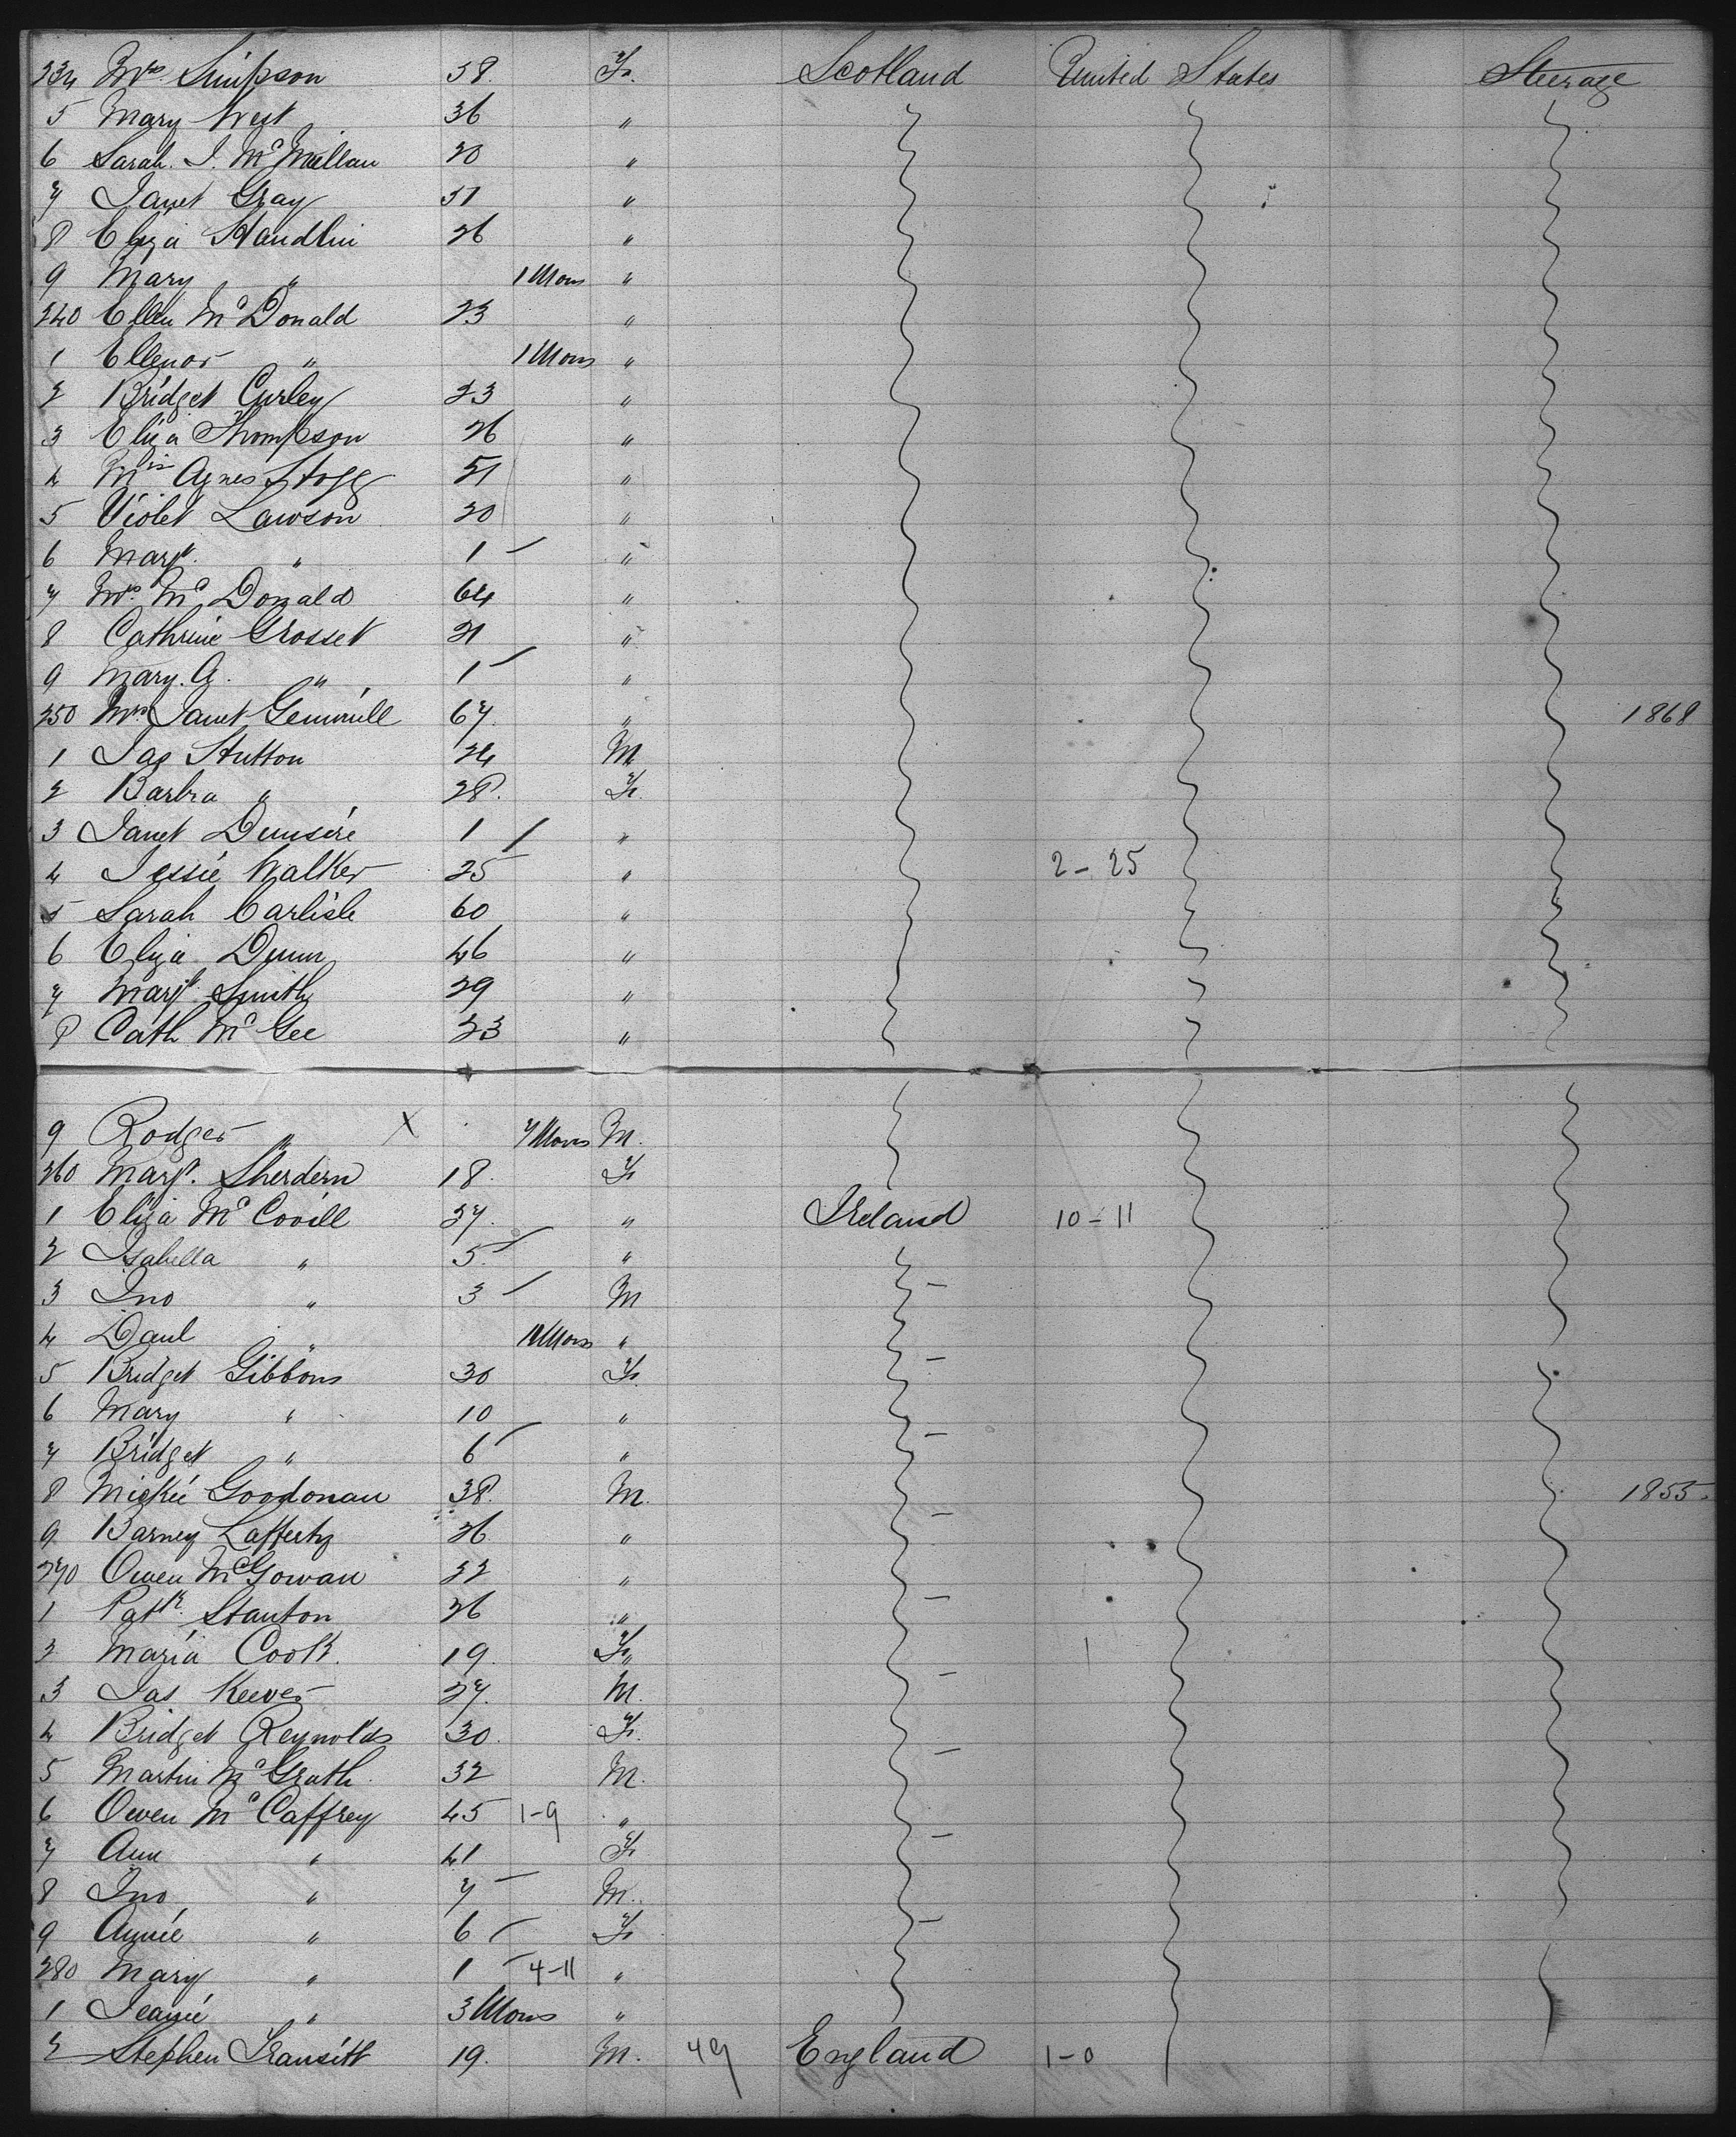 234 Mrs. Simpson 38. F. Scotland United States Steerage
5 Mary West 36 "
6 Sarah. J. McMillan 20 "
7 Janet Gray 31 "
8 Eliza Handlin 26 "
9 Mary " 1 Mons "
240 Ellen McDonald 23 "
1 Ellenor " 1 Mons "
2 Bridget Curley 23 "
3 Eliza Thompson 26 "
4 Agnes 51 "
5 Violet Lawson 20 "
6 Margt. " 1 "
7 Mrs. McDonald 64 "
8 Cathrine Grosset 21 "
9 Mary. A. " 1 "
250 Mrs Janet Gemmill 67. " 1868
1 Jas Hutton 24 M
2 Barbra " 28. F.
3 Janet Dunsire 1 "
4 Jessie Walker 25 " 2-25
5 Sarah Carlisle 60 "
6 Eliza Dunn 46 "
7 Margt. Smith 29 "
8 Cath McGee 23 "
9 Rodger " X 7 Mons M.
260 Margt. Sherdern 18. F
1 Eliza McCovill 27. " Ireland 10-11
2 Isabella " 5 "
3 Jno " 3 M
4 Danl " 11 Mons "
5 Bridget Gibbons 30 F.
6 Mary " 10 "
7 Bridget " 6 "
8 Mickie Goodonan 38. M. 1855.
9 Barney Lafferty 26. "
270 Owen McGowan 32 "
1 Patk. Stanton 26 "
2 Maria Cook. 19. F "
3 Jas Keever 27. M.
4 Bridget Reynolds 30. F.
5 Martin McGrath 32 M.
6 Owen McCaffrey 45 1-9 "
7 Ann " 41 F
8 Jno " 7 M.
9 Annie " 6 F
280 Mary " 1 4-11 "
1 Jeanie " 3 Mons "
2 Stephen Transitt 19. M. 49 England 1-0